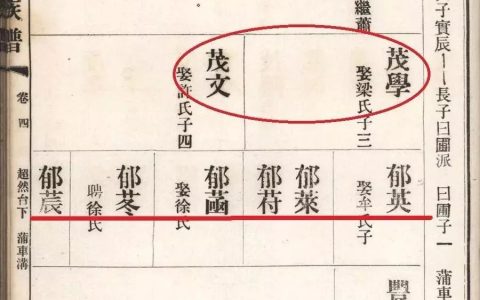 長子實辰——長子曰圃派 曰圃子一 蒲車
繼蕭
茂學
娶梁氏子三
茂文
娶許氏子四
郁英
娶牟氏子
郁萊
郁苻
郁菡
娶徐氏
郁苳
聘徐氏
郁莀
族譜 卷四 超然台下 蒲車溝